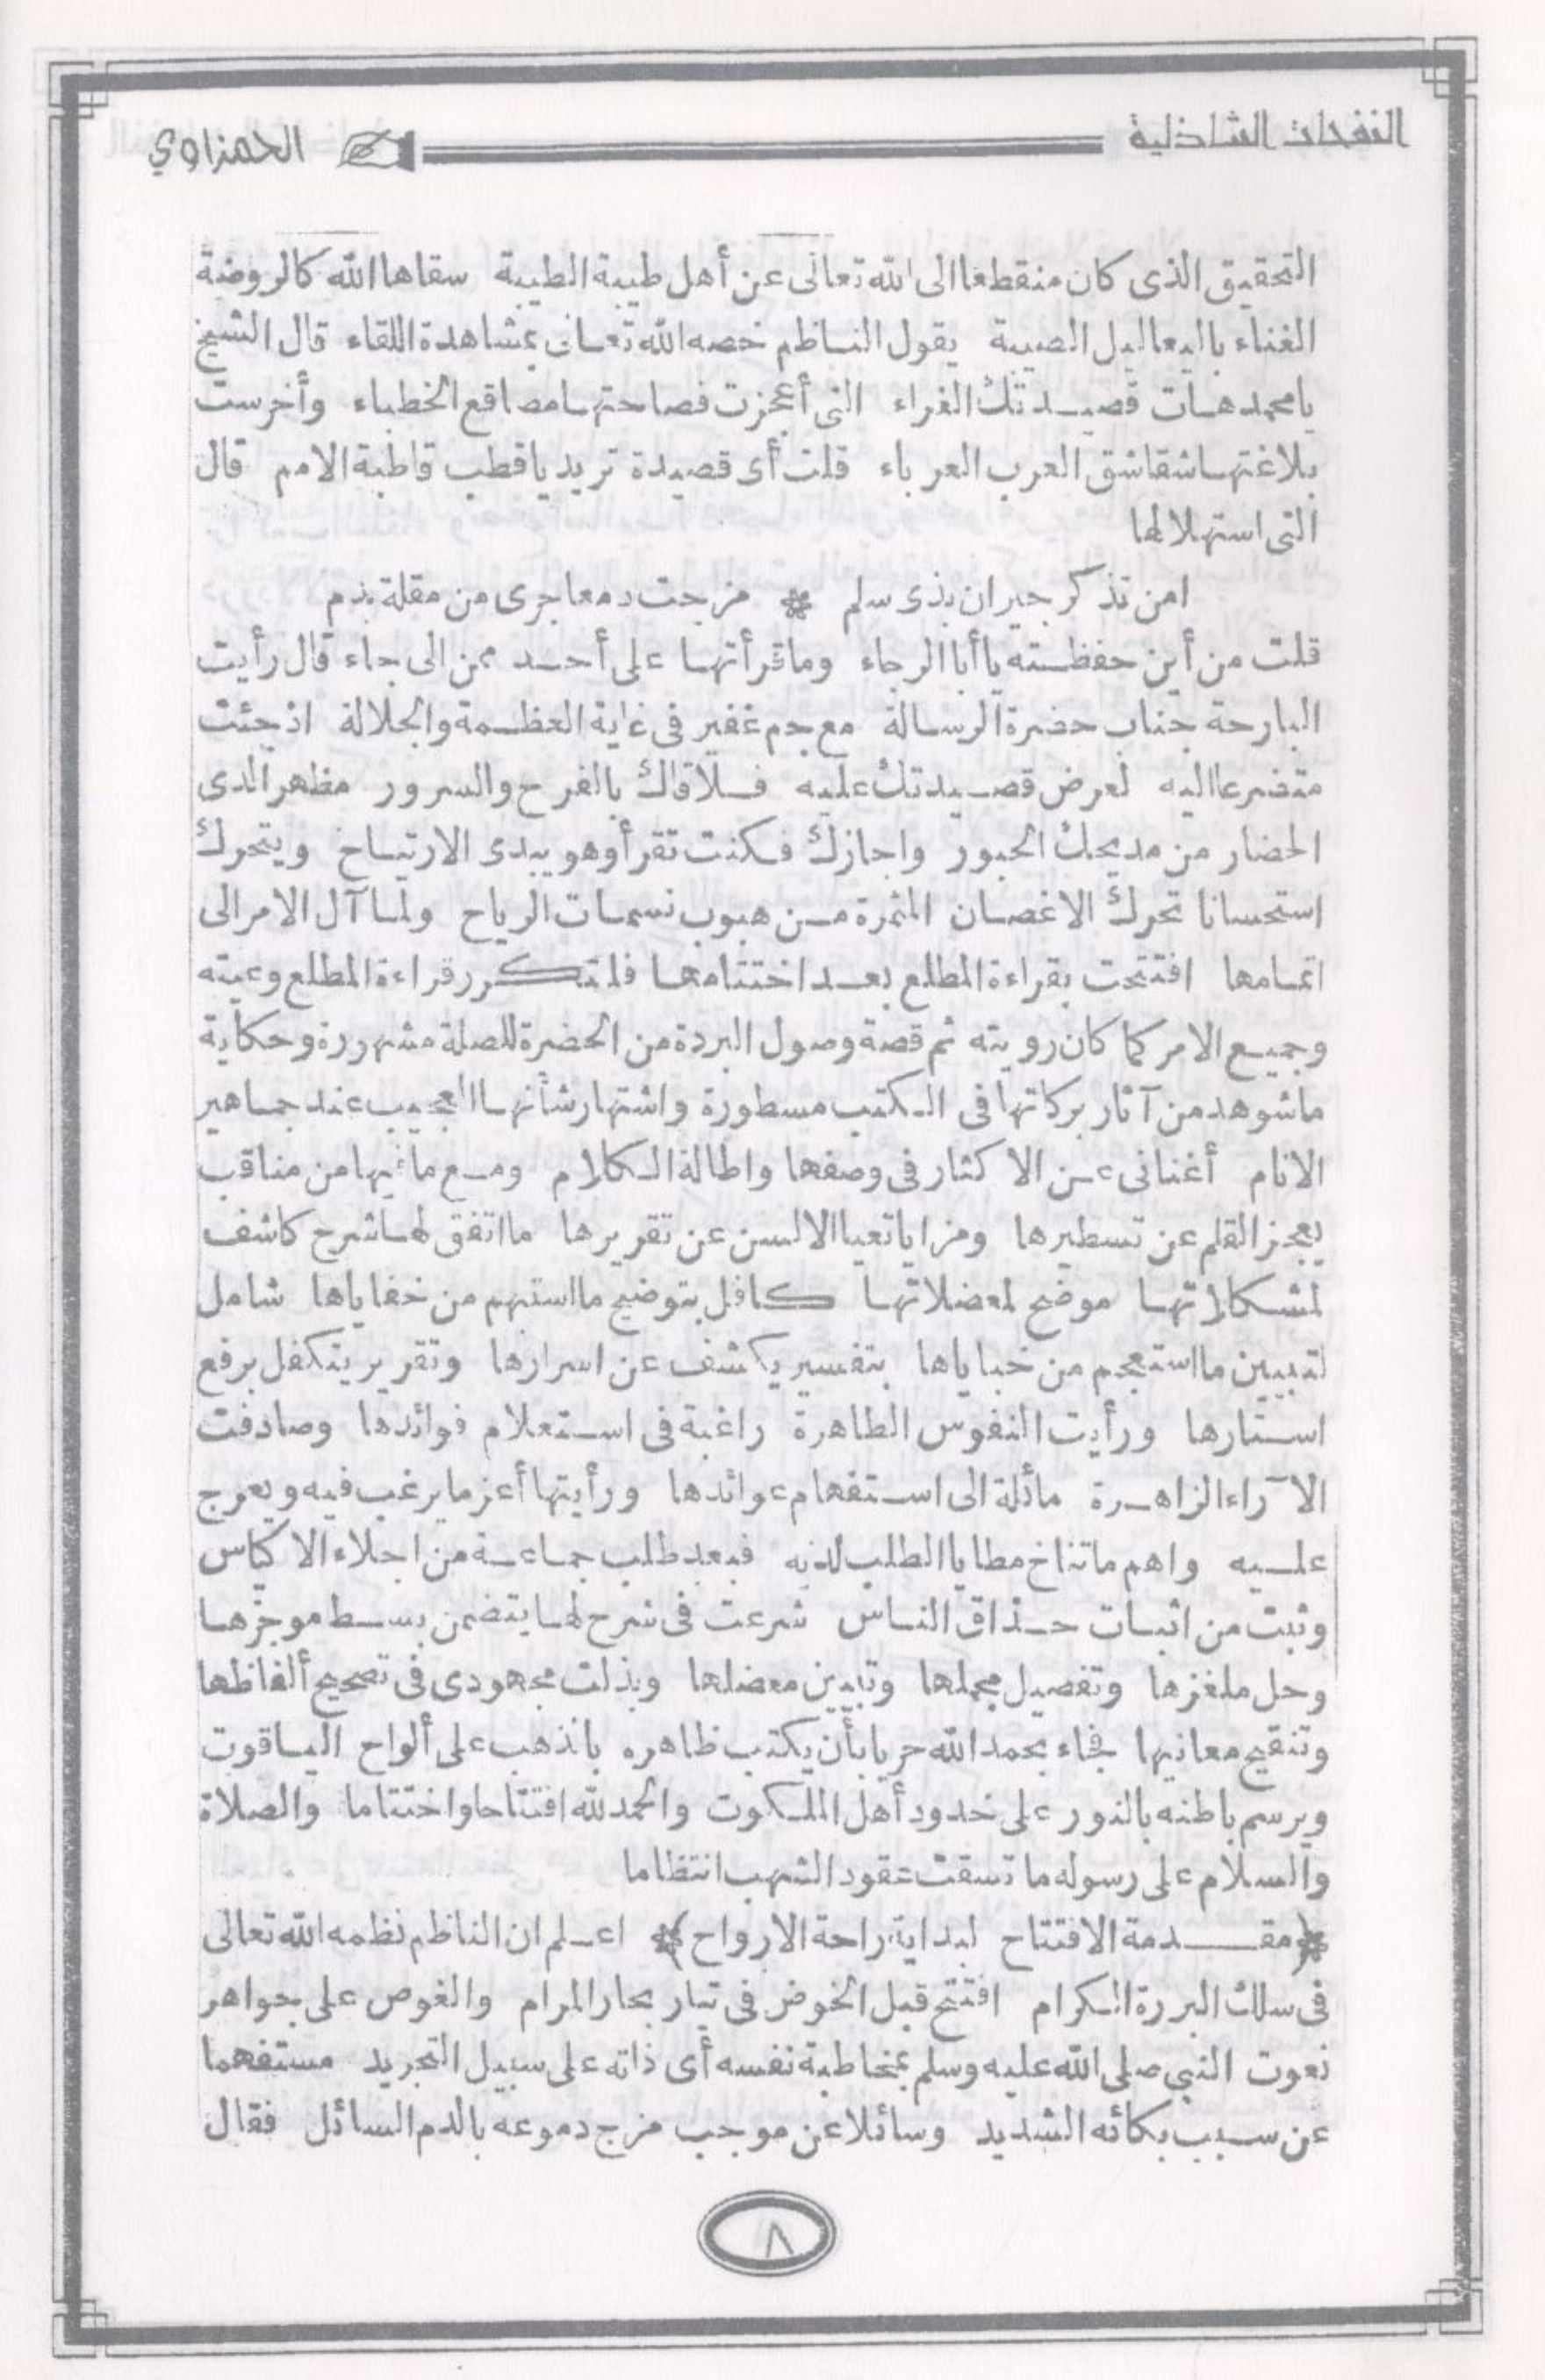 النفحات الشاذلية
الحمزاوي
التحقيق الذى كان منقطعا الى الله تعالى عن أهل طيبة الطيبة سقاها الله كالروضة
الغناء باليعاليل الصيبة يقول الناظم خصه الله تعالى بمشاهدة اللقاء قال الشيخ
يا محمد هات قصيدتك الغراء التى أعجزت فصاحتها مصاقع الخطباء وأخرست
بلاغتها شقاشق العرب العرباء قلت أى قصيدة تريد يا قطب قاطبة الامم قال
التى استهلالها
امن تذكر جيران بذى سلم * مزجت دمعا جرى من مقلة بدم
قلت من أين حفظته يا أبا الرجاء وما قرأتها على أحد ممن الى جاء قال رأيت
البارحة جناب حضرة الرسالة مع جم غفير فى غاية العظمة والجلالة اذ جئت
متضرعا اليه لعرض قصيدتك عليه فلاقاك بالفرح والسرور مظهر الدى
الحضار من مديحك الحبور واجازك فكنت تقرأ وهو يبدى الارتياخ ويتحرك
استحسانا تحرك الاغصان المثمرة من هبوب نسمات الرياح ولما آل الامر الى
اتمامها افتتحت بقراءة المطلع بعد اختتامها فلتكرر قراءة المطلع وعيته
وجميع الامر كما كان رويته ثم قصة وصول البردة من الحضرة للصلة مشهورة وحكاية
ما شوهد من آثار بركاتها فى الكتب مسطورة واشتهار شأنها العجيب عند جماهير
الانام أغنانى عن الاكثار فى وصفها واطالة الكلام ومع ما فيها من مناقب
يعجز القلم عن تسطيرها ومزايا تعيا الالسن عن تقريرها ما اتفق لها شرح كاشف
لمشكلاتها موضح لمعضلاتها كافل بتوضيح ما استبهم من خفاياها شامل
لتبيين ما استعجم من خباياها بتفسير يكشف عن اسرارها وتقرير يتكفل برفع
استارها ورأيت النفوس الطاهرة راغبة فى استعلام فوائدها وصادفت
الآراء الزاهرة مائلة الى استفهام عوائدها ورأيتها أعز ما يرغب فيه ويعرج
عليه واهم ما تناخ مطايا الطلب لديه فبعد طلب جماعة من اجلاء الاكياس
وثبت من اثبات حذاق الناس شرعت فى شرح لها يتضمن بسط موجزها
وحل ملغزها وتفصيل مجملها وتبيين معضلها وبذلت مجهودى فى تصحيح ألفاظها
وتنقيح معانيها فجاء بحمد الله حريا بأن يكتب ظاهره بالذهب على ألواح الياقوت
ويرسم باطنه بالنور على خدود أهل الملكوت والحمد لله افتتاحا واختتاما والصلاة
والسلام على رسوله ما تسقت عقود الشهب انتظاما
﴿مقدمة الافتتاح لبداية راحة الارواح﴾ اعلم ان الناظم نظمه الله تعالى
فى سلك البررة الكرام افتتح قبل الخوض فى تيار بحار المرام والغوص على جواهر
نعوت النبى صلى الله عليه وسلم بمخاطبة نفسه أى ذاته على سبيل التجريد مستفهما
عن سبب بكائه الشديد وسائلا عن موجب مزج دموعه بالدم السائل فقال
٨